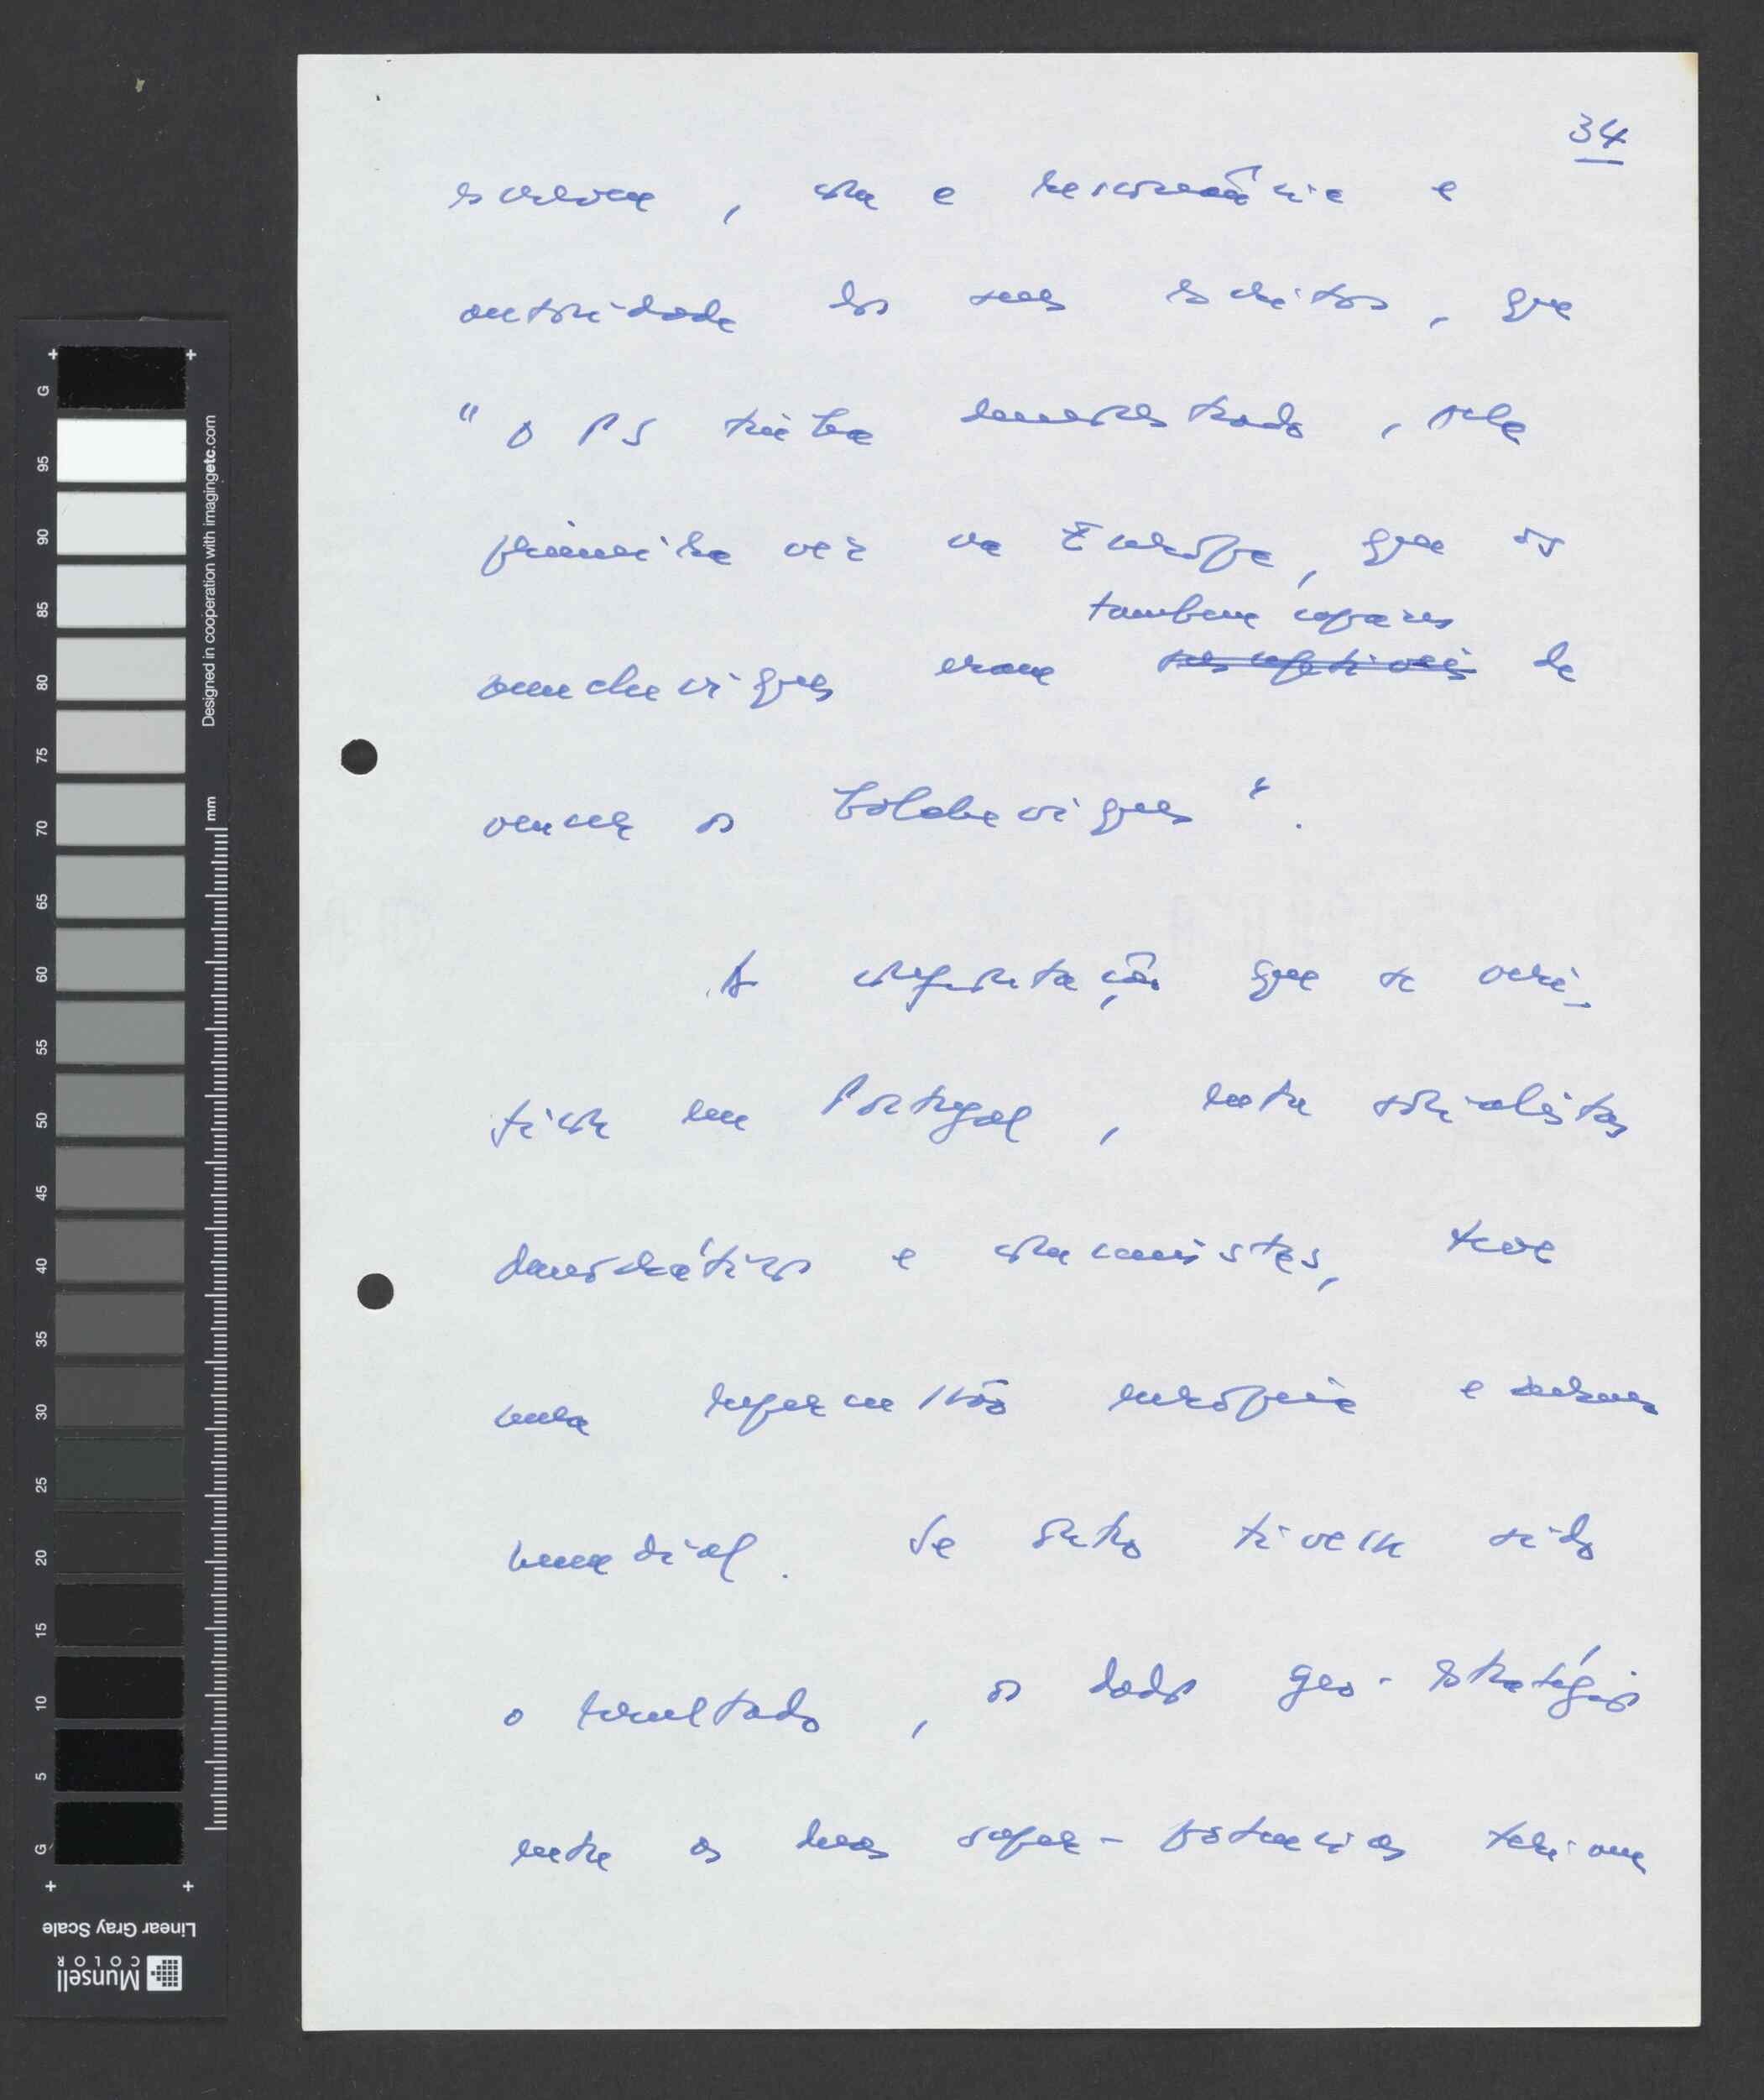 34
escreveu, com a ressonância e
autoridade dos seus escritos, que
" o PS tinha demonstrado, pela
primeira vez na Europa, que os
também capazes
mencheviques eram de
vencer os bolcheviques ".
A confrontação que se veri-
ficou em Portugal, entre socialistas
democráticos e comunistas, teve
uma repercussão europeia e mesmo
mundial. Se outro tivesse sido
o resultado, os dados geo-estratégicos
entre as duas super-potências teriam
G
95
90
85
80
75
70
65
60
55
50
45
40
35
30
25
20
15
10
5
G
mm
Designed in cooperation with imagingetc.com
Linear Gray Scale
Munsell
COLOR